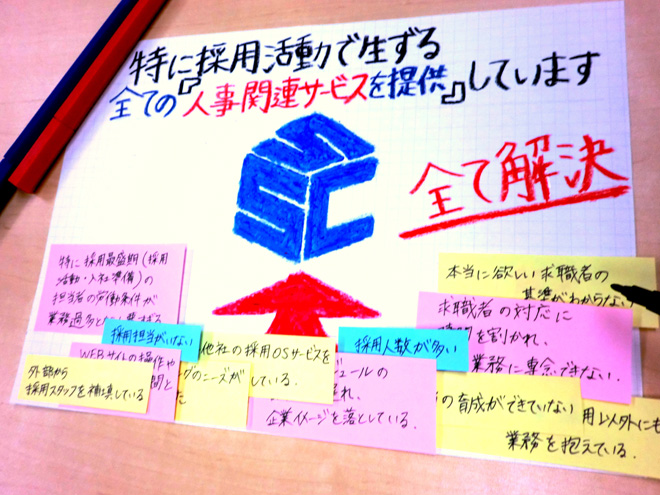 特に『採用活動で生ずる
全ての人事関連サービスを提供』しています
SSC
全て解決
特に採用最盛期(採用
活動・入社準備)の
担当者の労働条件が
業務過多と
採用担当がいない
WEBサイトの操作や
外部から
採用スタッフを補填している
他社の採用OSサービスを
のニーズが
している.
採用人数が多い
ジュールの
れ、
企業イメージを落としている.
本当に欲しい求職者の
基準がわからない
求職者の対応に
を割かれ、
業務に専念できない.
の育成ができていない
用以外にも
業務を抱えている.